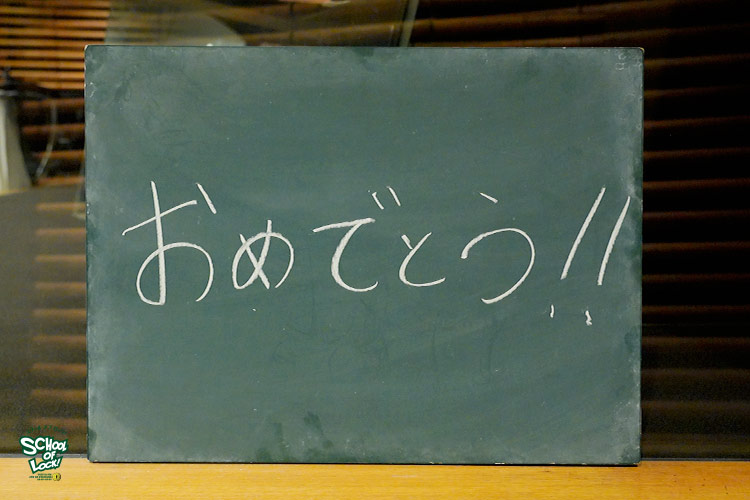 おめでとう!!
SCHOOL
OF
LOCK!